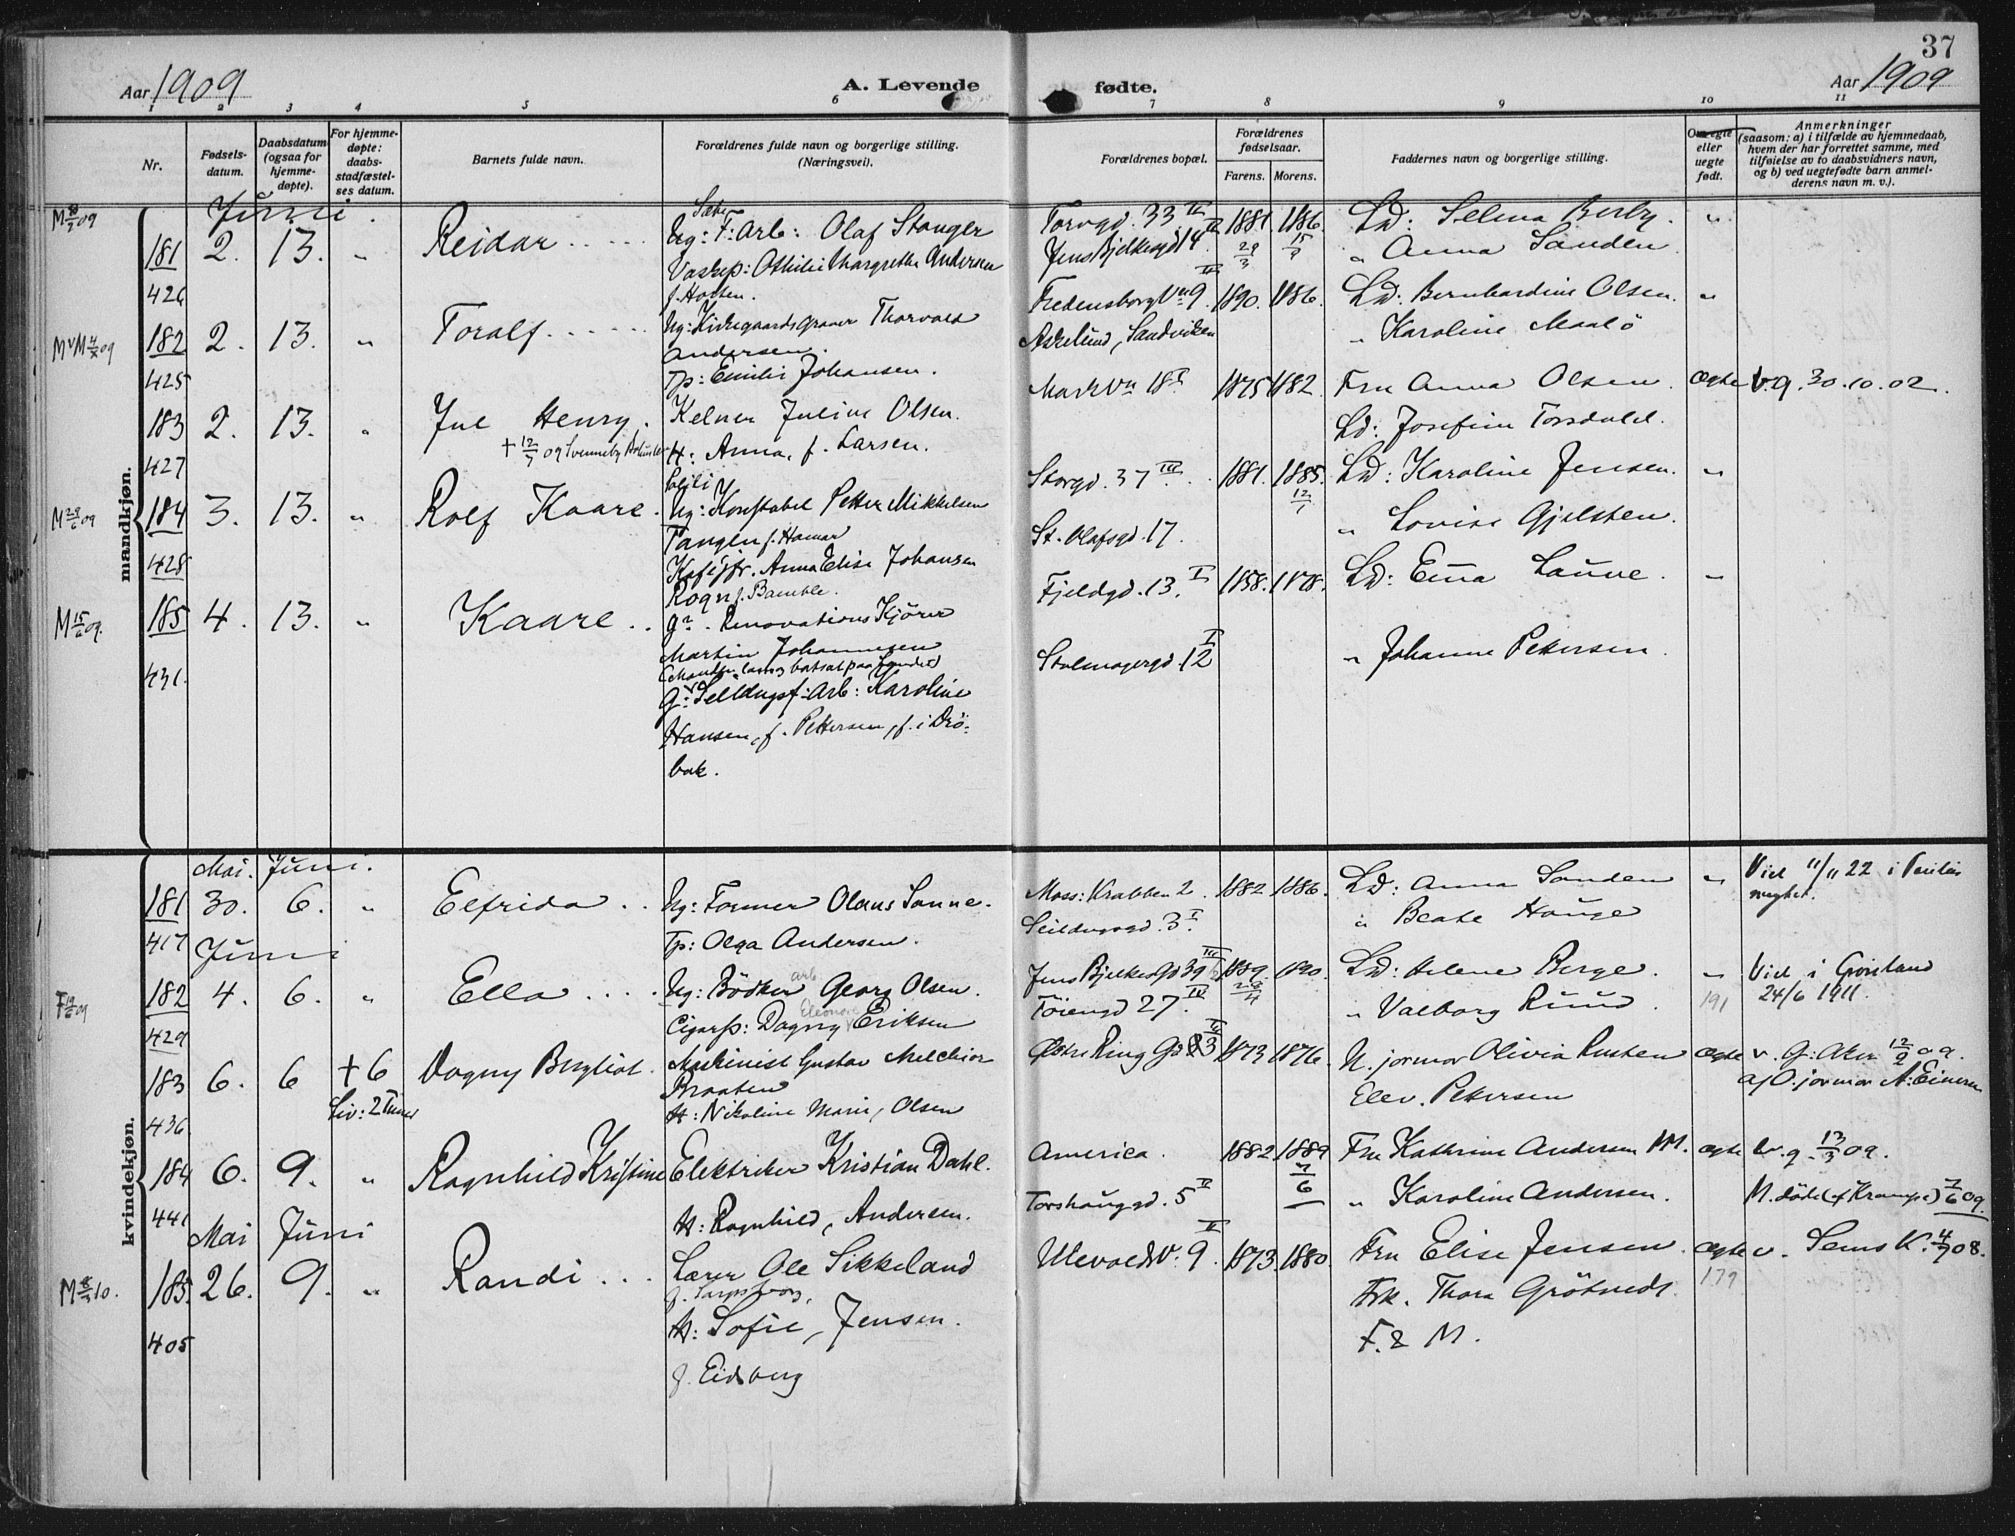 37
Aar 1909 A. Levende fødte. Aar 1909
1 2 3 4 5 6 7 8 9 10 11
Nr.
Fødsels-
datum.
Daabsdatum
(ogsaa for
hjemme-
døpte).
For hjemme-
døpte:
daabs-
stadfæstel-
ses datum.
Barnets fulde navn.
Forældrenes fulde navn og borgerlige stilling.
(Næringsvei).
Forældrenes bopæl.
Forældrenes
fødselsaar.
Farens. Morens.
Faddernes navn og borgerlige stilling.
Om egte
eller
uegte
født.
Anmerkninger
(saasom: a) i tilfælde av hjemmedaab,
hvem der har forrettet samme, med
tilføielse av to daabsvidners navn,
og b) ved uegtefødte barn anmel-
derens navn m. v.).
mandkjøn.
Juni
181 2. 13. " Reidar
426
Ug: F: Arb: Olaf Stanger
Vaskep: Othilie Margrethe Andersen
f. Horten.
Torvgd. 33 III
Jens Bjelkesgd 14 II
1881. 1886.
29/3
Ld: Selma Berby. "
" Anna Sanden
182 2. 13. " Toralf
425
Ug: Kirkegaardsgraver Thorvald
Andersen.
Tp: Emilie Johansen.
Fredensborgvn 9 II
Sandviken
1890. 1886.
Ld: Bernhardine Olsen. "
" Karoline Maalö
183 2. 13. " Jul Henry.
427
† 12/7 09
Kelner Julius Olsen.
H: Anna, f. Larsen.
Markvn 18 I
1875 1882.
Fru Anna Olsen. Ægte v. g. 30.10.02.
Ld: Josefine Torsdahl.
184 3. 13. " Rolf Kaare.
428
M 28/6 09
Ug: Konstabel Petter Mikkelsen
Tangen f. Hamar
Anna Elise Johansen
Rogn f. Bamble.
Storgd. 37 III
St. Olafsgd. 17.
1881. 1885.
12/1
Ld: Karoline Jensen. "
" Lovise Gjelsten.
185 4. 13. " Kaare
431.
M 15/6 09.
gn. Renovations Kjörer
Martin Johannesen
g: Seildugsf: Arb: Karoline
Hansen, f. Pettersen, f. i Drö-
bak.
Fjeldgd. 13. I
Stolmagergd 12 I
1858. 1878.
Ld: Emma Laune. "
" Johanne Petersen.
kvindekjøn.
Mai. Juni.
181 30. 6. " Elfrida
417
Ug: Former Olaus Sanne.
Tp: Olga Andersen.
Moss: Krabben 2
Seildugsgd. 3. I
1882 1886.
Ld: Anna Sanden "
" Beate Hauge
Viel 11/11 22 i
Juni
182 4. 6. " Ella
429
Ug: Bödker arb Georg Olsen.
Cigarp: Dagny Eleonore Eriksen
Jens Bjelkesgd 39 III
Töiengd 27. IV
1889. 1890.
Ld: Helene Berge. "
" Valborg Ruud. 191
Viel i Grönland
24/6 1911.
183 6. 6 † 6 Dagny Bergliot.
436.
Liv: 2 Timer
Maskinist Gustav Melchior
Braaten
H: Nikoline Marie, Olsen
1873 1876.
N. jormor Olivia Rusten Ægte v. G: Aker 12/2 09.
Elev. Petersen
af O. jormor
184 6. 9. " Ragnhild Kristine
441
Elektriker Kristian Dahl.
H: Ragnhild, Andersen.
America.
Torshaugsd. 5 II
1882 1889
7/6
Fru Kathrine Andersen M. Ægte v. g. 13/3 09.
" Karoline Andersen. M. döde (af Krampe) 7/6 09.
Mai Juni
185. 26. 9. " Randi
405
M 8/3 10.
Lærer Ole Sikkeland
f. Sarpsborg,
H: Sofie, Jensen.
f. Eidsberg
Ulevoldsv. 9 II
1873. 1880.
Fru Elise Jensen. Ægte v. Sems K. 4/7 08.
Frk. Thora Grötvedt. 179
F. & M.